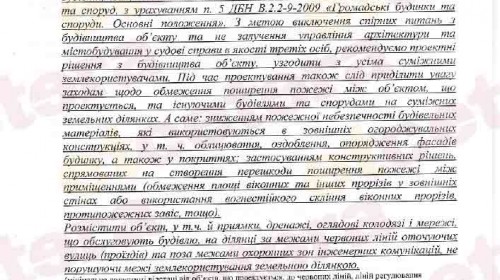 та споруд, з урахуванням п. 5 ДБН В.2.2-9-2009 «Громадські будинки та
споруди. Основні положення». З метою виключення спірних питань з
будівництва об'єкту та не залучення управління архітектури та
містобудування у судові справи в якості третіх осіб, рекомендуємо проектні
рішення з будівництва об'єкту, узгодити з усіма суміжними
землекористувачами. Під час проектування також слід приділити увагу
заходам щодо обмеження поширення пожежі між об'єктом, що
проектується, та існуючими будівлями та спорудами на суміжних
земельних ділянках. А саме: зниженням пожежної небезпечності будівельних
матеріалів, які використовуються в зовнішніх огороджувальних
конструкціях, у т. ч. облицювання, оздоблення, опорядження фасадів
будинку, а також у покриттях; застосуванням конструктивних рішень,
спрямованих на створення перешкоди поширення пожежі між
приміщеннями (обмеження площі віконних та інших прорізів у зовнішніх
стінах або використання вогнестійкого скління віконних прорізів,
протипожежних завіс, тощо).
Розмістити об'єкт, у т.ч. й приямки, дренажі, оглядові колодязі і мережі,
що обслуговують будівлю, на ділянці за межами червоних ліній оточуючих
вулиць (проїздів) та поза межами охоронних зон інженерних комунікацій, не
порушуючи межі землекористування земельною ділянкою.
що проектується, до червоних ліній, ліній регулювання